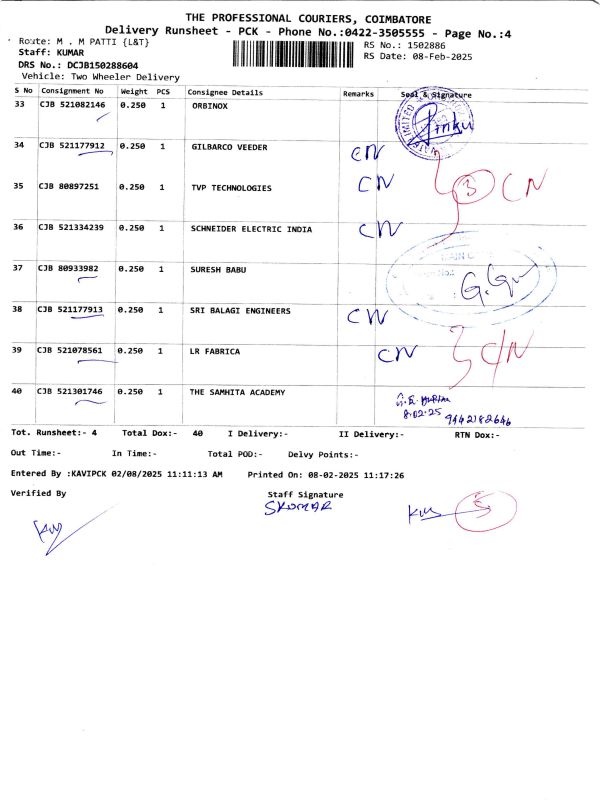 THE PROFESSIONAL COURIERS, COIMBATORE
Delivery Runsheet - PCK - Phone No.:0422-3505555 - Page No.:4
Route: M . M PATTI {L&T}
RS No.: 1502886
Staff: KUMAR
RS Date: 08-Feb-2025
DRS No.: DCJB150288604
Vehicle: Two Wheeler Delivery
S No Consignment No Weight PCS Consignee Details Remarks Seal & Signature
33 CJB 521082146 0.250 1 ORBINOX
34 CJB 521177912 0.250 1 GILBARCO VEEDER CN
35 CJB 80897251 0.250 1 TVP TECHNOLOGIES CN 3 CN
36 CJB 521334239 0.250 1 SCHNEIDER ELECTRIC INDIA CN
37 CJB 80933982 0.250 1 SURESH BABU
38 CJB 521177913 0.250 1 SRI BALAGI ENGINEERS CN
39 CJB 521078561 0.250 1 LR FABRICA CN C/N
40 CJB 521301746 0.250 1 THE SAMHITA ACADEMY
8.02.25 9442182646
Tot. Runsheet:- 4 Total Dox:- 40 I Delivery:- II Delivery:- RTN Dox:-
Out Time:- In Time:- Total POD:- Delvy Points:-
Entered By :KAVIPCK 02/08/2025 11:11:13 AM Printed On: 08-02-2025 11:17:26
Verified By Staff Signature
SKUMAR
5